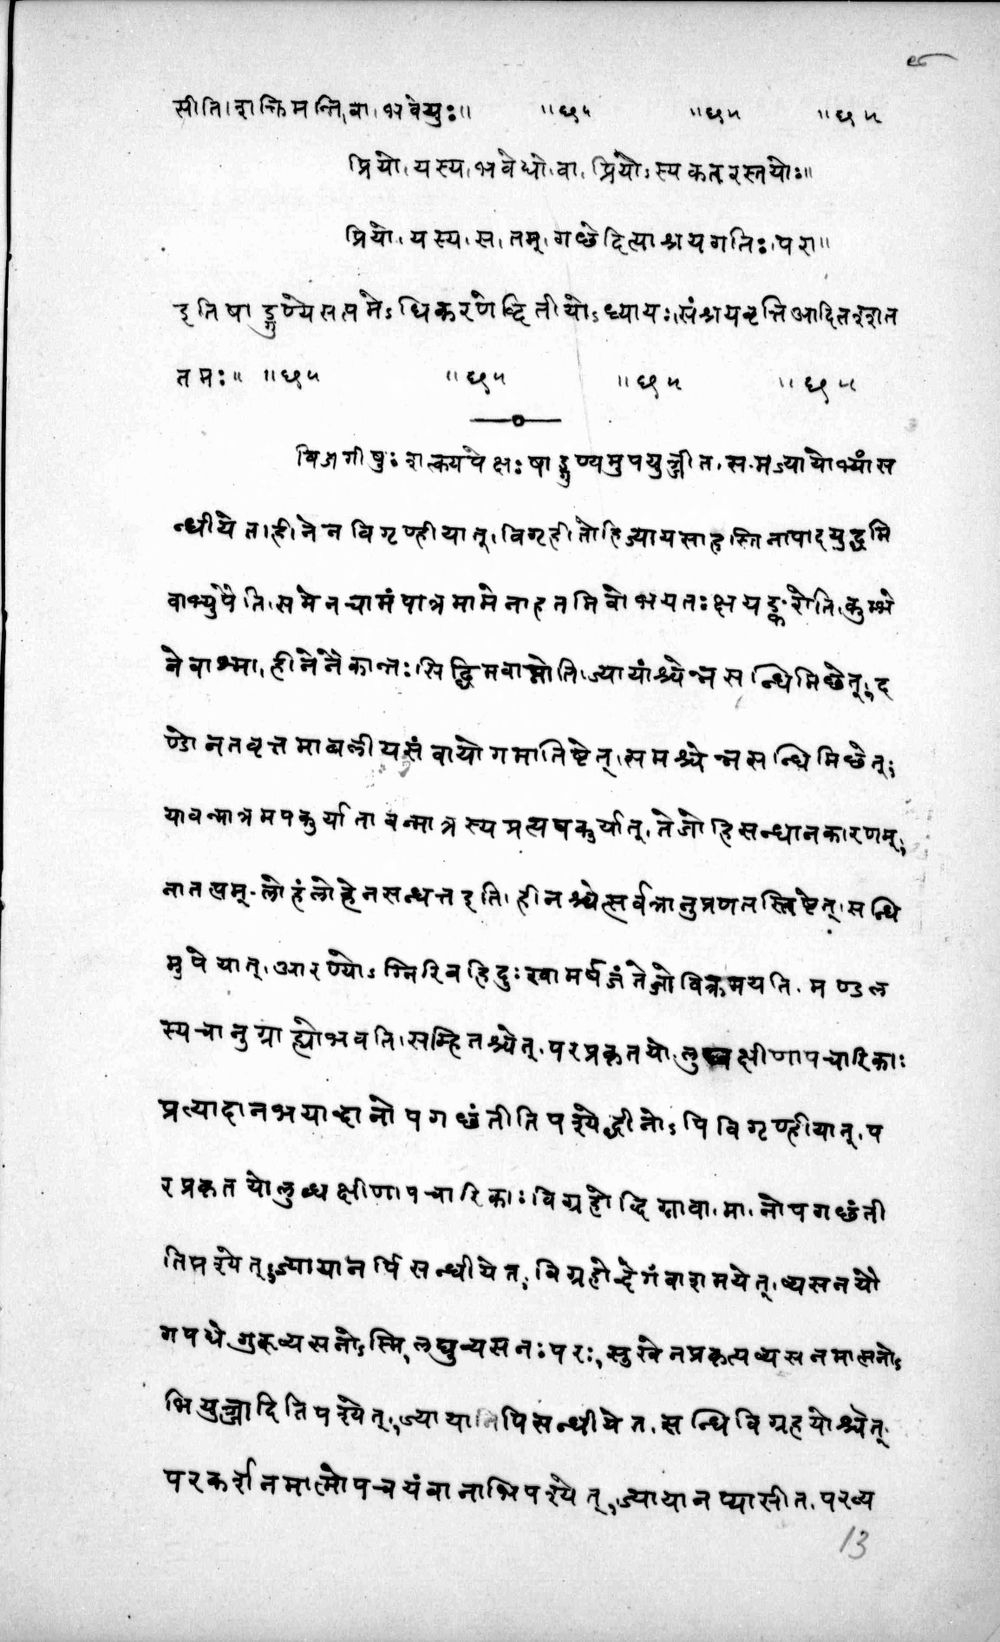 सीति।शक्तिमन्ति।वा।भवेयुः॥ ॥छ॥ ॥छ॥ ॥छ॥
प्रियो।यस्य।भवेद्यो।वा।प्रियोऽस्य कतरस्तयोः॥
प्रियो।यस्य।स।तम्।गछेदित्याश्रयगतिः।परा॥
इति षाड्गुण्ये सप्तमेऽधिकरणे द्वितीयोऽध्यायः।संश्रयवृत्ति आदितश्शत
तमः॥ ॥छ॥ ॥छ॥ ॥छ॥ ॥छ॥
विजगीषुः शक्त्यपेक्षः षाड्गुण्यमुपयुञ्जीत।समज्यायोभ्यां स
न्धीयेत।हीनेन विगृण्हीयात्।विगृहीतो हि ज्यायसा हस्तिना पादयुद्धमि
वाभ्युपैति।समेन चामं पात्रमामेनाहतमिवोभयतः क्षयङ्करोति।कुम्भे
नेवाश्मा।हीनेनैकान्तः सिद्धिमवाप्नोति।ज्यायांश्चेन्न सन्धिमिछेत्;द
ण्डोनतवृत्तमाबलीयसं वा योगमातिष्टेत्।समश्चेन्न सन्धिमिछेत्;
यावन्मात्रमपकुर्यात्तावन्मात्रस्य प्रत्यपकुर्यात्।तेजो हि सन्धानकारणम्;
नातप्तम्-लोहं लोहेन सन्धत्त इति।हीनश्चेत्सर्वत्रानुप्रणतस्तिष्टेत्।सन्धि
मुपेयात्।आरण्योऽग्निरिव हि दुःखामर्षजं तेजो विक्रमयति।मण्डल
स्य चानुग्राह्यो भवति।सम्हितश्चेत्।परप्रकृतयो लुब्धक्षीणापचारिकाः
प्रत्यादानभयाद्वा नोपगछंतीति पश्येद्धीनोऽपि विगृण्हीयात्।प
रप्रकृतयो लुब्धक्षीणापचारिकाः विग्रहोद्विग्नावा।मा।नोपगछंती
ति पश्येत्;ज्यायानपि सन्धीयेत;विग्रहोद्वेगं वा शमयेत्।व्यसनयौ
गपधे गुरुव्यसनोऽस्मि,लघुव्यसनः परः,सुखेन प्रकृत्य व्यसनमात्मनोऽ
भियुञ्ज्यादिति पश्येत्;ज्यायानपि सन्धीयेत।सन्धिविग्रहयोश्चेत्
परकर्शनमात्मोपचयं वा नाभिपश्येत्,ज्यायानप्यासीत।परव्य
13